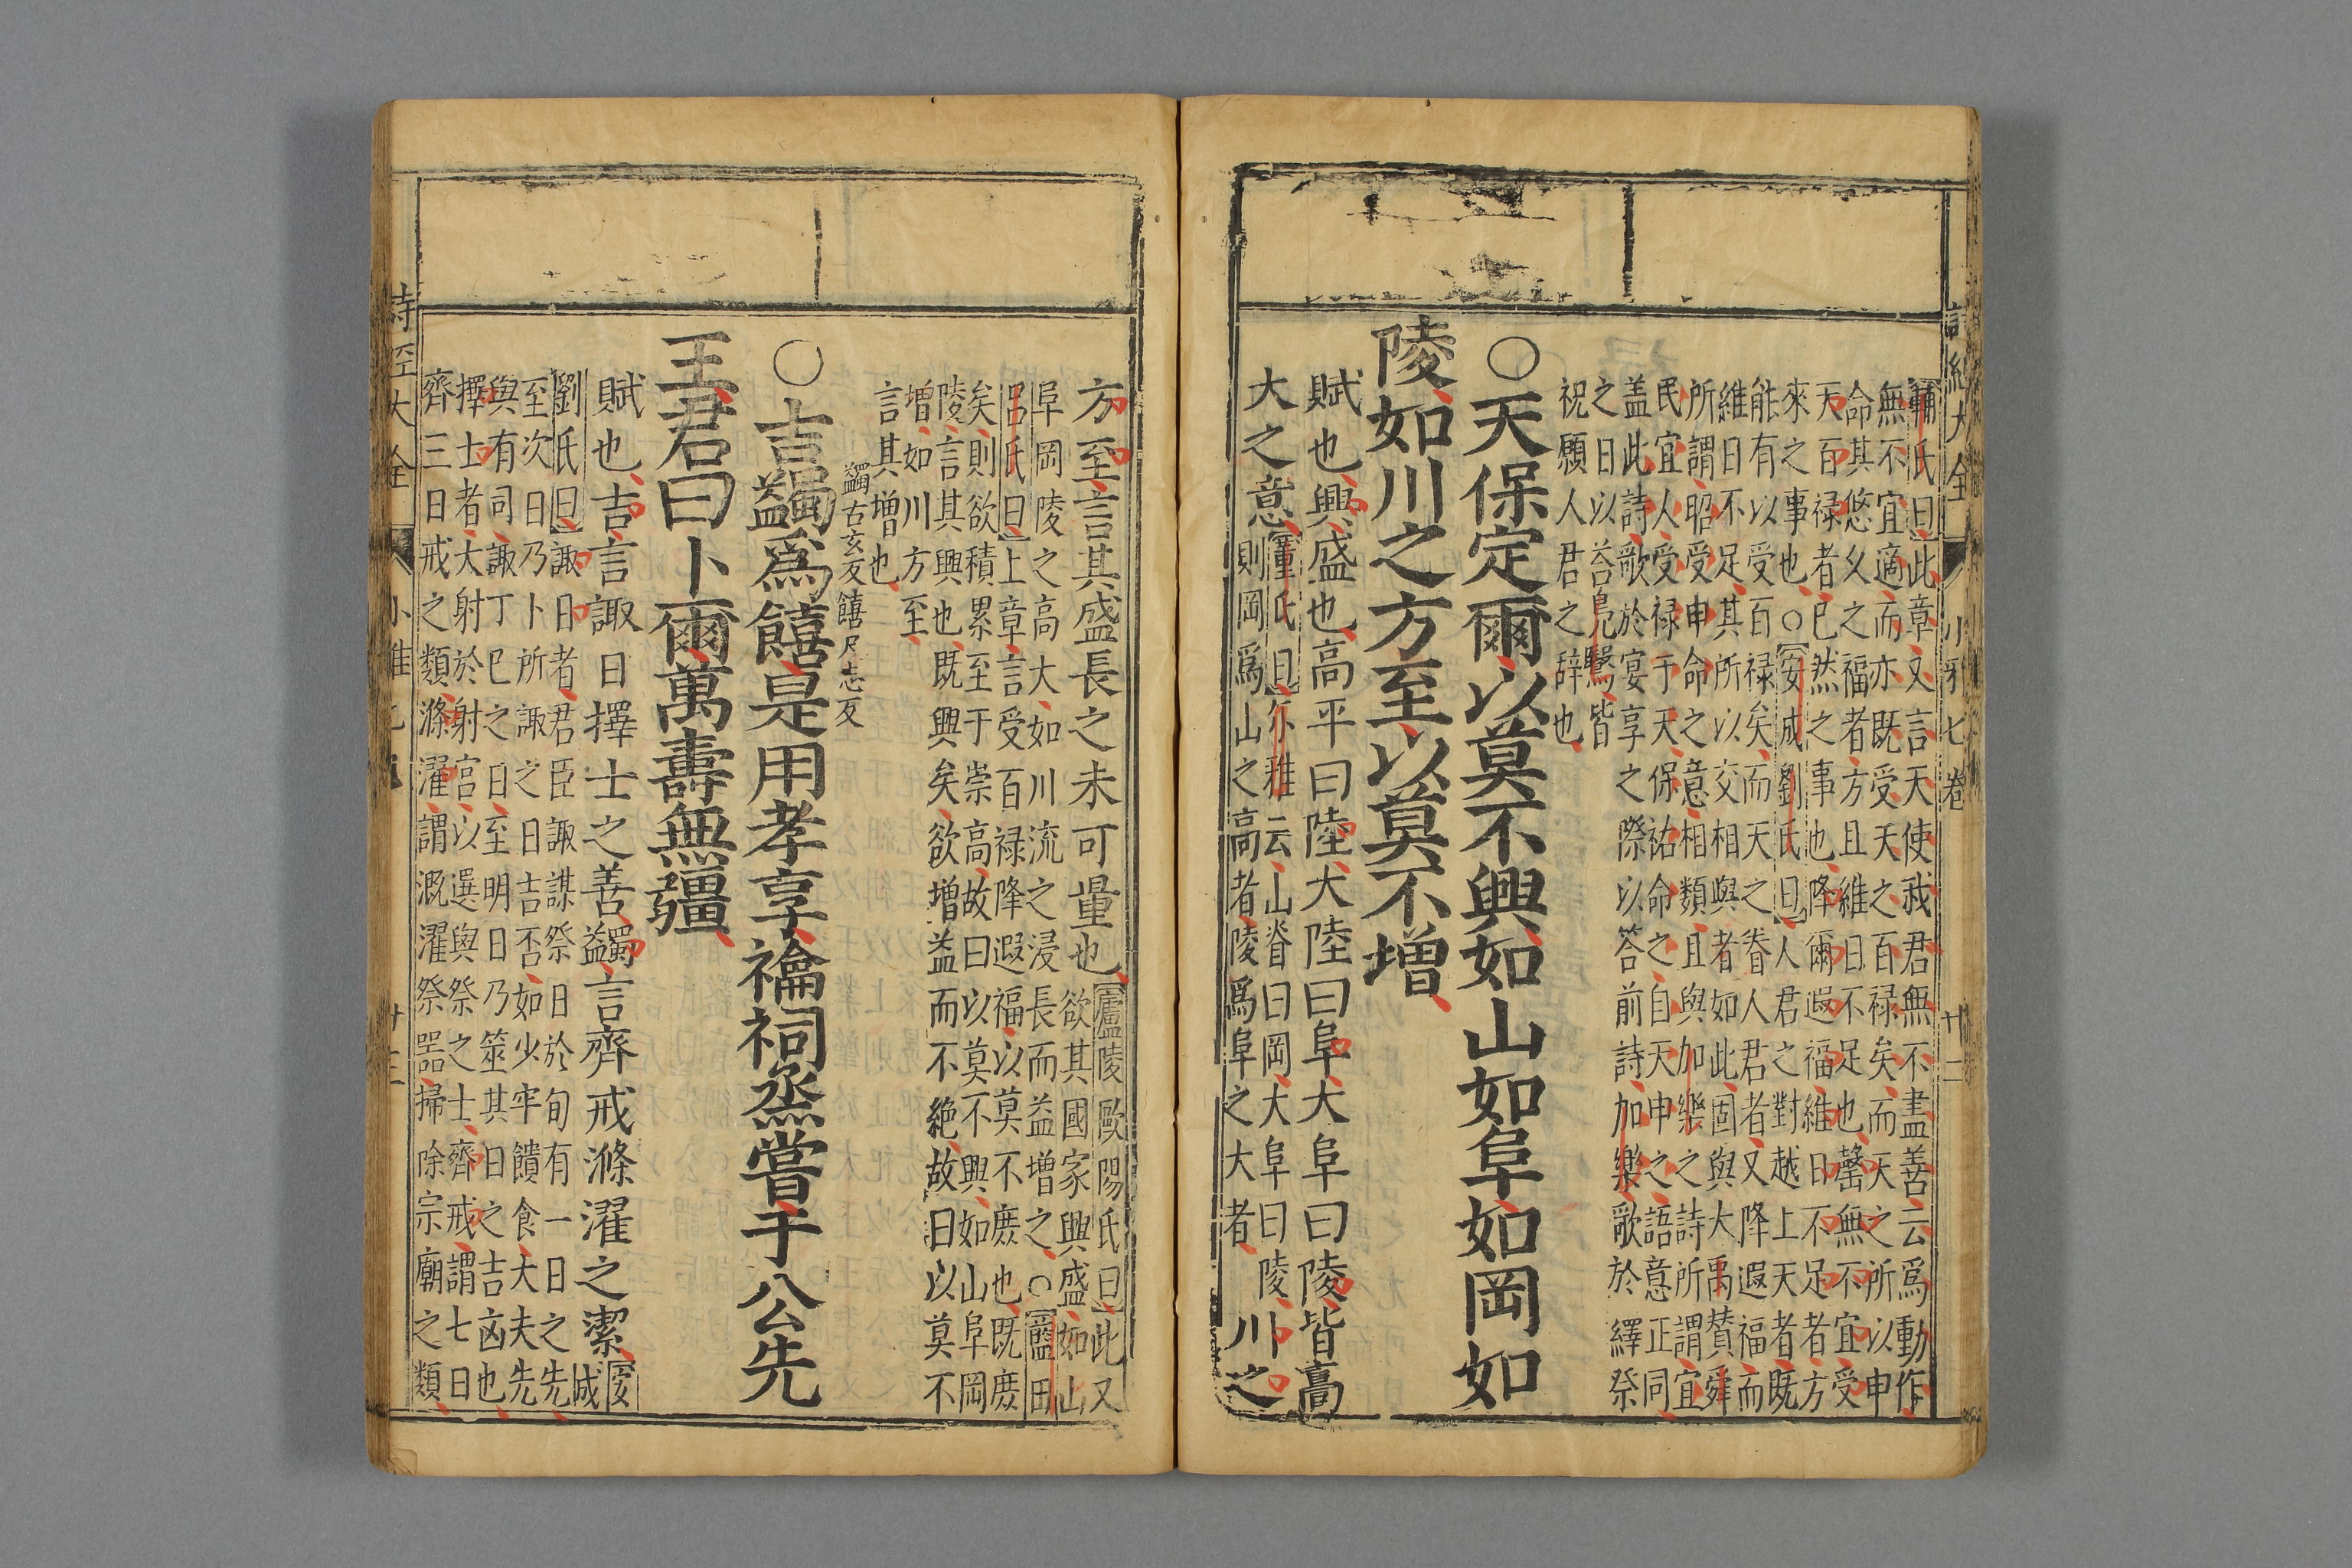 詩經大全 小雅七卷 廿二
輔氏曰此章又言天使我君無不盡善云爲動作
無不宜適而亦既受天之百禄矣而天之所以申
命其悠乂之福者方且維日不足也罄無不宜受
天百禄者已然之事也降爾遐福維日不足者方
來之事也○安成劉氏曰人君之對越上天者既
能有以受百禄矣而天之眷人君者又降遐福而
維日不足其所以交相與者如此固與大禹賛舜
所謂昭受申命之意相類且與加樂之詩所謂宜
民宜人受禄于天保祐命之自天申之語意正同
盖此詩歌於宴享之際以答前詩加樂歌於繹祭
之日以荅鳧鷖皆
祝願人君之辞也
○天保定爾以莫不興如山如阜如岡如
陵如川之方至以莫不增
賦也興盛也高平曰陸大陸曰阜大阜曰陵皆高
大之意董氏曰尔雅云山脊曰岡大阜曰陵
則岡爲山之高者陵爲阜之大者川之
方至言其盛長之未可量也廬陵歐陽氏曰此又
欲其國家興盛如山
阜岡陵之高大如川流之浸長而益增之○藍田
呂氏曰上章言受百禄降遐福以莫不庶也既庶
矣則欲積累至于崇高故曰以莫不興如山阜岡
陵言其興也既興矣欲增益而不絶故曰以莫不
增如川方至
言其增也
蠲古玄反饎尺志反
○吉蠲爲饎是用孝享禴祠烝嘗于公先
王君曰卜爾萬壽無疆
賦也吉言諏日擇士之善蠲言齊戒滌濯之潔安
成
劉氏曰諏日者君臣諏謀祭日於旬有一日之先
至次日乃卜所諏之日吉否如少牢饋食大夫先
與有司諏丁巳之日至明日乃筮其日之吉凶也
擇士者大射於射宮以選與祭之士齊戒謂七日
齊三日戒之類滌濯謂溉濯祭器掃除宗廟之類
詩經大全 小雅